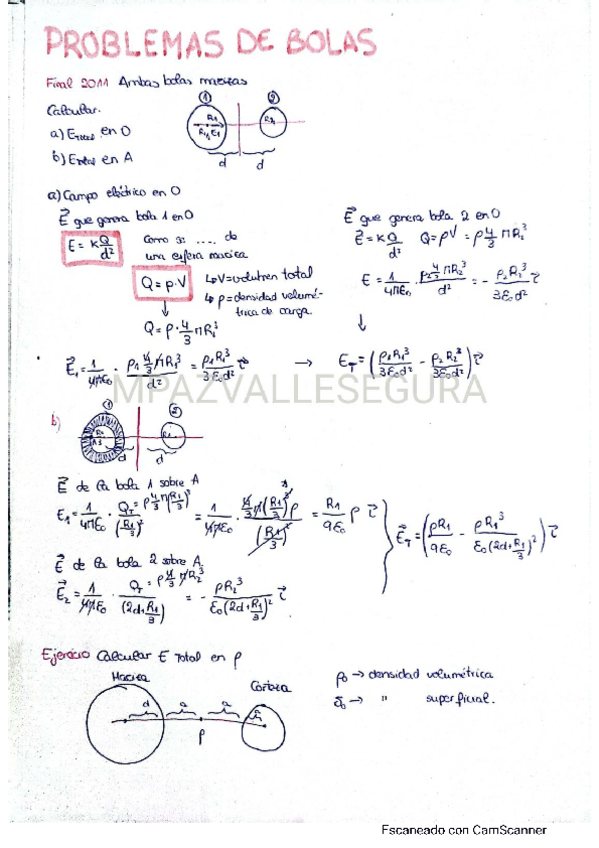 PROBLEMAS DE BOLAS
Final 2011 Ambas bolas macizas
① ②
Calcular.
a) E total en O
R1
R1/3 E1
R2
b) E total en A
d d
a) Campo eléctrico en O
E⃗ que genera bola 1 en O
E = K Q/d²
Como si .... de
una esfera maciza
Q = ρ·V
↳ V = volumen total
↳ ρ = densidad volumé-
trica de carga.
Q = ρ · 4/3 πR1³
E⃗ que genera bola 2 en O
E⃗ = K Q/d² Q = ρV = ρ 4/3 πR2³
E = 1/4πε0 · ρ2 4/3 πR2³/d² = - ρ2R2³/3ε0d² τ⃗
↓
E⃗1 = 1/4πε0 · ρ1 4/3 πR1³/d² = ρ1R1³/3ε0d² τ⃗ → ET = (ρ1R1³/3ε0d² - ρ2R2³/3ε0d²) τ⃗
MPAZVALLESEGURA
b)
① ②
d d
E⃗ de la bola 1 sobre A
E1 = 1/4πε0 · QT/(R1/3)² = ρ 4/3 π(R1/3)³ = 1/4πε0 · 4/3 π(R1/3)³ρ/(R1/3)² = R1/9ε0 ρ τ⃗
E⃗T = (ρR1/9ε0 - ρR1³/ε0(2d+R1/3)²) τ⃗
E⃗ de la bola 2 sobre A.
E⃗2 = 1/4πε0 · QT/(2d+R1/3)² = ρ 4/3 πR2³ = - ρR2³/ε0(2d+R1/3)² τ⃗
Ejercicio Calcular E Total en P
Maciza
Corteza
d a a a
P
ρ0 → densidad volumétrica
δ0 → " superficial.
Escaneado con CamScanner